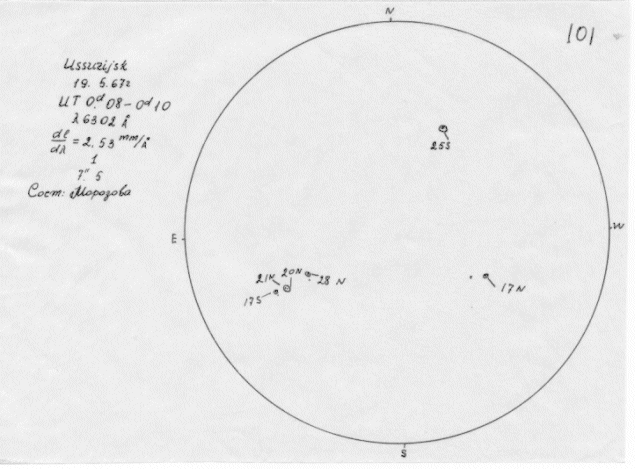 N
101
Ussurijsk
19. 5. 67г
UT 0.ᵈ08-0ᵈ10
λ 6302 Å
dl/dλ = 2,53 mm/Å
1
7," 5
Сост: Морозова
25S
E
W
21N 20N 28 N
17S
17N
S